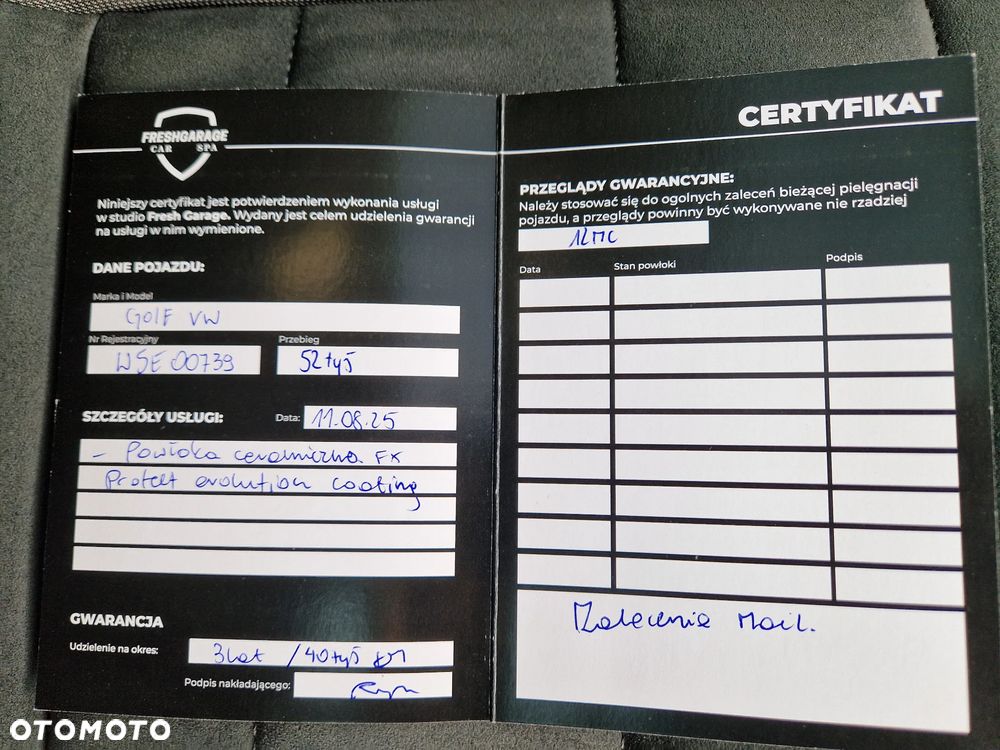 FRESHGARAGE
CAR SPA
Niniejszy certyfikat jest potwierdzeniem wykonania usługi
w studio Fresh Garage. Wydany jest celem udzielenia gwarancji
na usługi w nim wymienione.
DANE POJAZDU:
Marka i Model
Golf VW
Nr Rejestracyjny
Przebieg
WSE 00739
52tyś
SZCZEGÓŁY USŁUGI:
Data:
11.08.25
- Powłoka ceramiczna FX
Protect evolution coating
GWARANCJA
Udzielenie na okres:
3 lat / 40tyś KM
Podpis nakładającego:
CERTYFIKAT
PRZEGLĄDY GWARANCYJNE:
Należy stosować się do ogolnych zaleceń bieżącej pielęgnacji
pojazdu, a przeglądy powinny być wykonywane nie rzadziej
12MC
Data
Stan powłoki
Podpis
Zalecenia Mail.
OTOMOTO